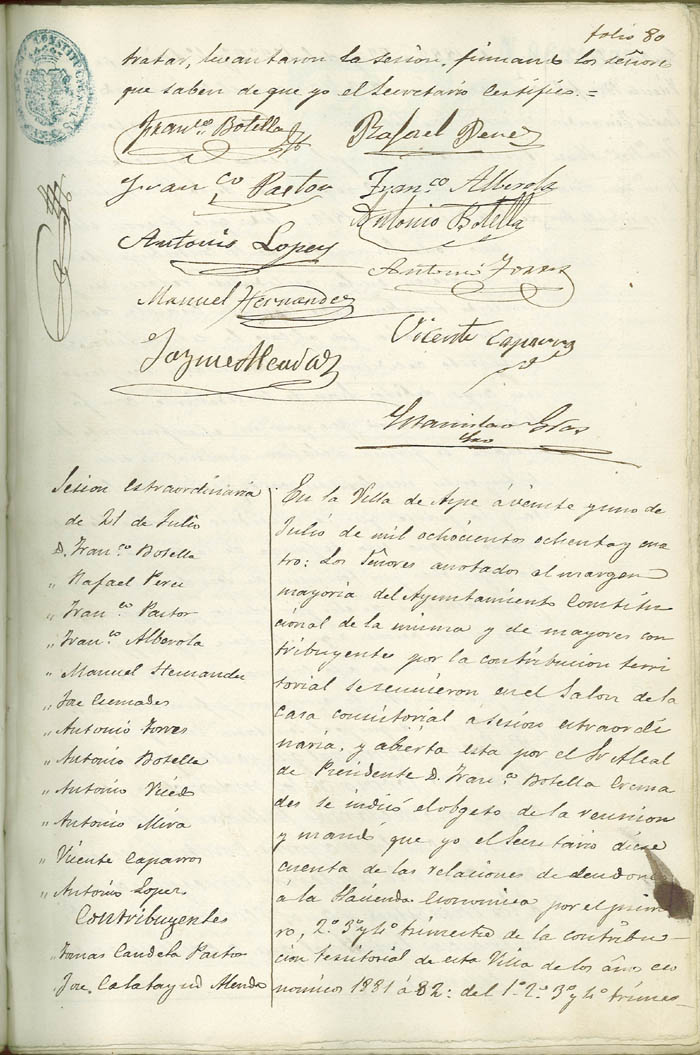 folio 80
tratar, levantaron la sesion, firmando los señores
que saben de que yo el Secretario Certifico.=
Franco Botella
Rafael Perez
Franco Pastor
Franco Alberola
Antonio Botella
Antonio Lopez
Antonio Torres
Manuel Hernandez
Vicente Caparros
Jayme Alcadaz
Estanislao Gras
Srio
Sesion estraordinaria
de 21 de Julio
D. Franco Botella
,, Rafael Perez
,, Franco Pastor
,, Franco Alberola
,, Manuel Hernandez
,, Jose Cremades
,, Antonio Torres
,, Antonio Botella
,, Antonio
,, Antonio Mira
,, Vicente Caparros
,, Antonio Lopez
Contribuyentes
Tomas Candela Pastor
Jose Calatayud
En la Villa de Aspe á veinte y uno de
Julio de mil ochocientos ochenta y cua
tro: Los Señores anotados al margen
mayoria del Ayuntamiento Constitu
cional de la misma y de mayores con
tribuyentes por la contribucion terri
torial se reunieron en el Salon de la
casa consistorial á sesion estraordi
naria, y abierta esta por el Sr Alcal
de Presidente D. Franco Botella Crema
des se indicó el obgeto de la reunion
y mandó que yo el Secretario diese
cuenta de las relaciones de deudores
á la Hacienda Economica por el prime
ro, 2º 3º y 4º trimestre de la contribu-
cion territorial de esta Villa de los años eco
nomicos 1881 á 82: del 1º 2º 3º y 4º trimes-